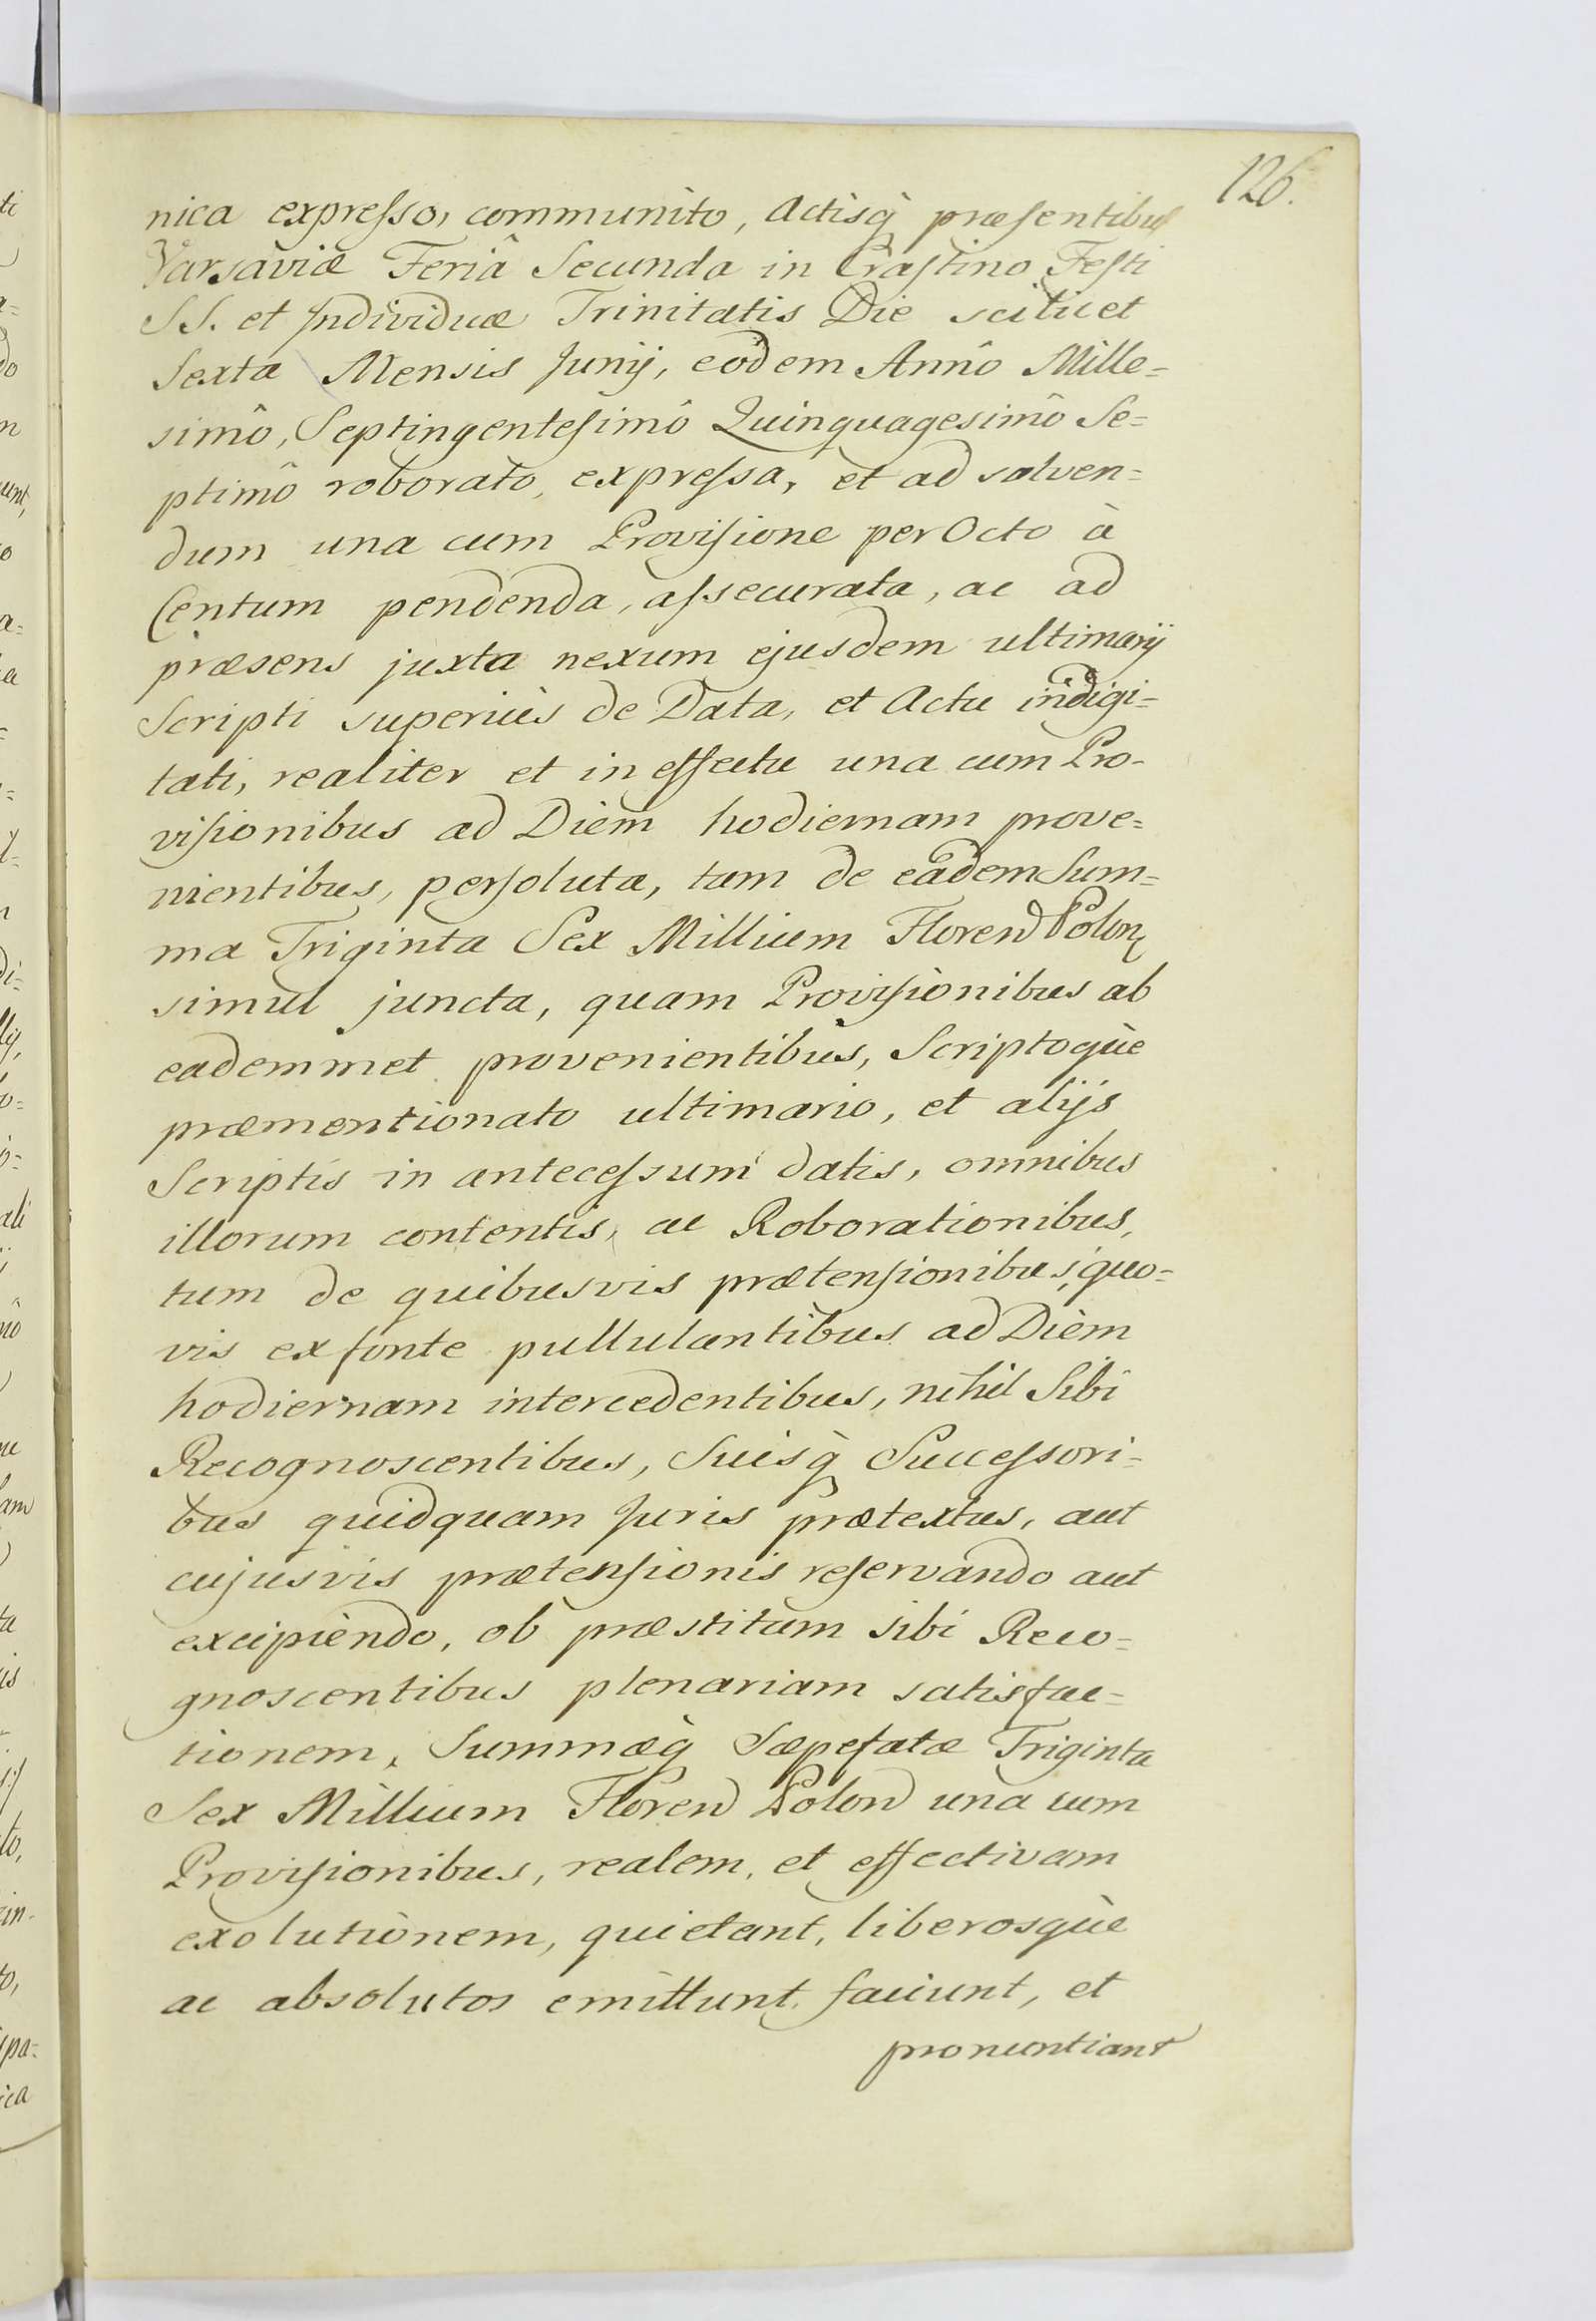 126.
nica expresso, communito, Actisq̀ præsentibus
Varsaviæ Feriâ Secunda in Crastino Festi
SS. et Individuæ Trinitatis Die scilicet
Sexta Mensis Junij, eodem Annô Mille=
simô, Septingentesimô Quinquagesimô Se=
ptimô roborato, expressa, et ad solven=
dum una cum Provisione per Octo à
Centum pendenda, assecurata, ac ad
præsens juxta nexum ejusdem ultimarij
Scripti superiùs de Data, et Actu indigi=
tati, realiter et in effectu una cum Pro-
visionibus ad Diem hodiernam prove=
nientibus, persoluta, tam de eâdem Sum=
ma Triginta Sex Millium Floren Polon
simul juncta, quam Provisionibus ab
eademmet provenientibus, Scriptoquè
præmentionato ultimario, et alijs
Scriptis in antecessum datis, omnibus
illorum contentis, ac Roborationibus,
tum de quibusvis prætensionibus, quo=
vis ex fonte pullulantibus ad Diem
hodiernam intercedentibus, nihil Sibi
Recognoscentibus, Suisq̀ Successori=
bus quidquam Juris prætextus, aut
cujusvis prætensionis reservando aut
excipiendo, ob præstitam sibi Reco=
gnoscentibus plenariam satisfac=
tionem, Summæq̀ Sæpefatæ Triginta
Sex Millium Floren Polon una cum
Provisionibus, realem, et effectivam
exolutionem, quietant, liberosquè
ac absolutos emittunt, faciunt, et
pronuntiant